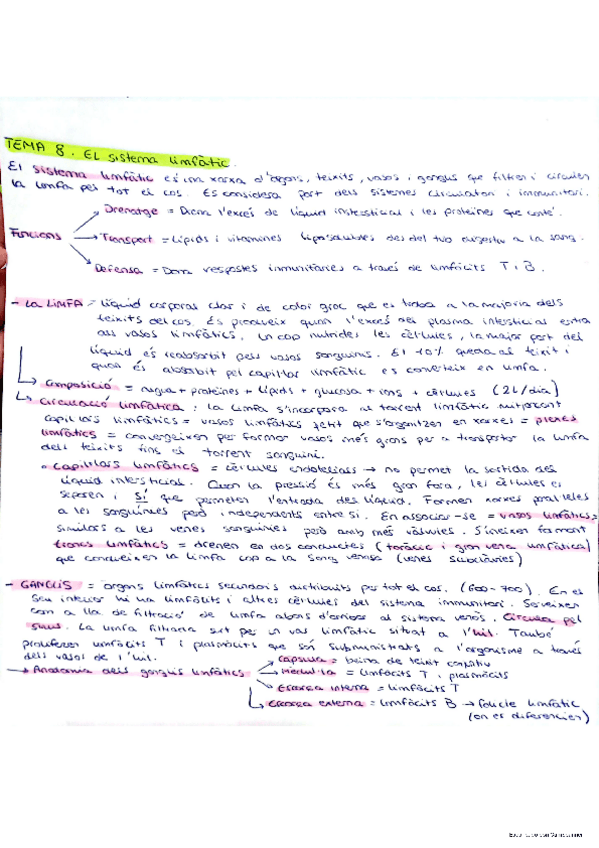 TEMA 8. EL sistema limfàtic.
El sistema limfàtic és una xarxa d'òrgans, teixits, vasos i ganglis que filtren i circulen
la limfa per tot el cos. Es considera part dels sistemes circulatori i immunitari.
Drenatge = Drena l'excés de líquid intersticial i les proteïnes que conté.
Funcions Transport = Lípids i vitamines liposolubles des del tub digestiu a la sang.
Defensa = Dona respostes immunitàries a través de limfòcits T i B.
- La LIMFA = líquid corporal clar i de color groc que es troba a la majoria dels
teixits del cos. Es produeix quan l'excés del plasma intersticial entra
als vasos limfàtics. Un cop nutrides les cèl·lules, la major part del
líquid és reabsorbit pels vasos sanguinis. El 10% queda al teixit i
quan és absorbit pel capil·lar limfàtic es converteix en limfa.
Composició = aigua + proteïnes + lípids + glucosa + ions + cèl·lules (2L/dia)
Circulació limfàtica: la limfa s'incorpora al torrent limfàtic mitjançant
capil·lars limfàtics = vasos limfàtics petit que s'organitzen en xarxes = plexes
limfàtics = convergeixen per formar vasos més grans per a transportar la limfa
dels teixits fins el torrent sanguini.
• Capil·lars limfàtics = cèl·lules endotelials → no permet la sortida del
líquid intersticial. Quan la pressió és més gran fora, les cèl·lules es
separen i SÍ que permeten l'entrada del líquid. Formen xarxes paral·leles
a les sanguínies però independents entre si. En associar-se = vasos limfàtics =
similars a les venes sanguínies però amb més vàlvules. S'uneixen formant
troncs limfàtics = drenen en dos conductes (toràcic i gran vena limfàtica)
que condueixen la limfa cap a la sang venosa (venes subclàvies)
- GANGLIS = òrgans limfàtics secundaris distribuïts per tot el cos. (600-700). En el
seu interior hi ha limfòcits i altres cèl·lules del sistema immunitari. Serveixen
com a lloc de filtració de limfa abans d'arribar al sistema venós. Circula pel
sinus. La limfa filtrada surt per un vas limfàtic situat a l'hili. També
proliferen limfòcits T i plasmòcits que són subministrats a l'organisme a través
dels vasos de l'hili.
→ Anatomia dels ganglis limfàtics Càpsula = beina de teixit conjuntiu
Medul·la = limfòcits T i plasmòcits
Escorça interna = limfòcits T
Escorça externa = limfòcits B → fol·licle limfàtic
(on es diferencien)